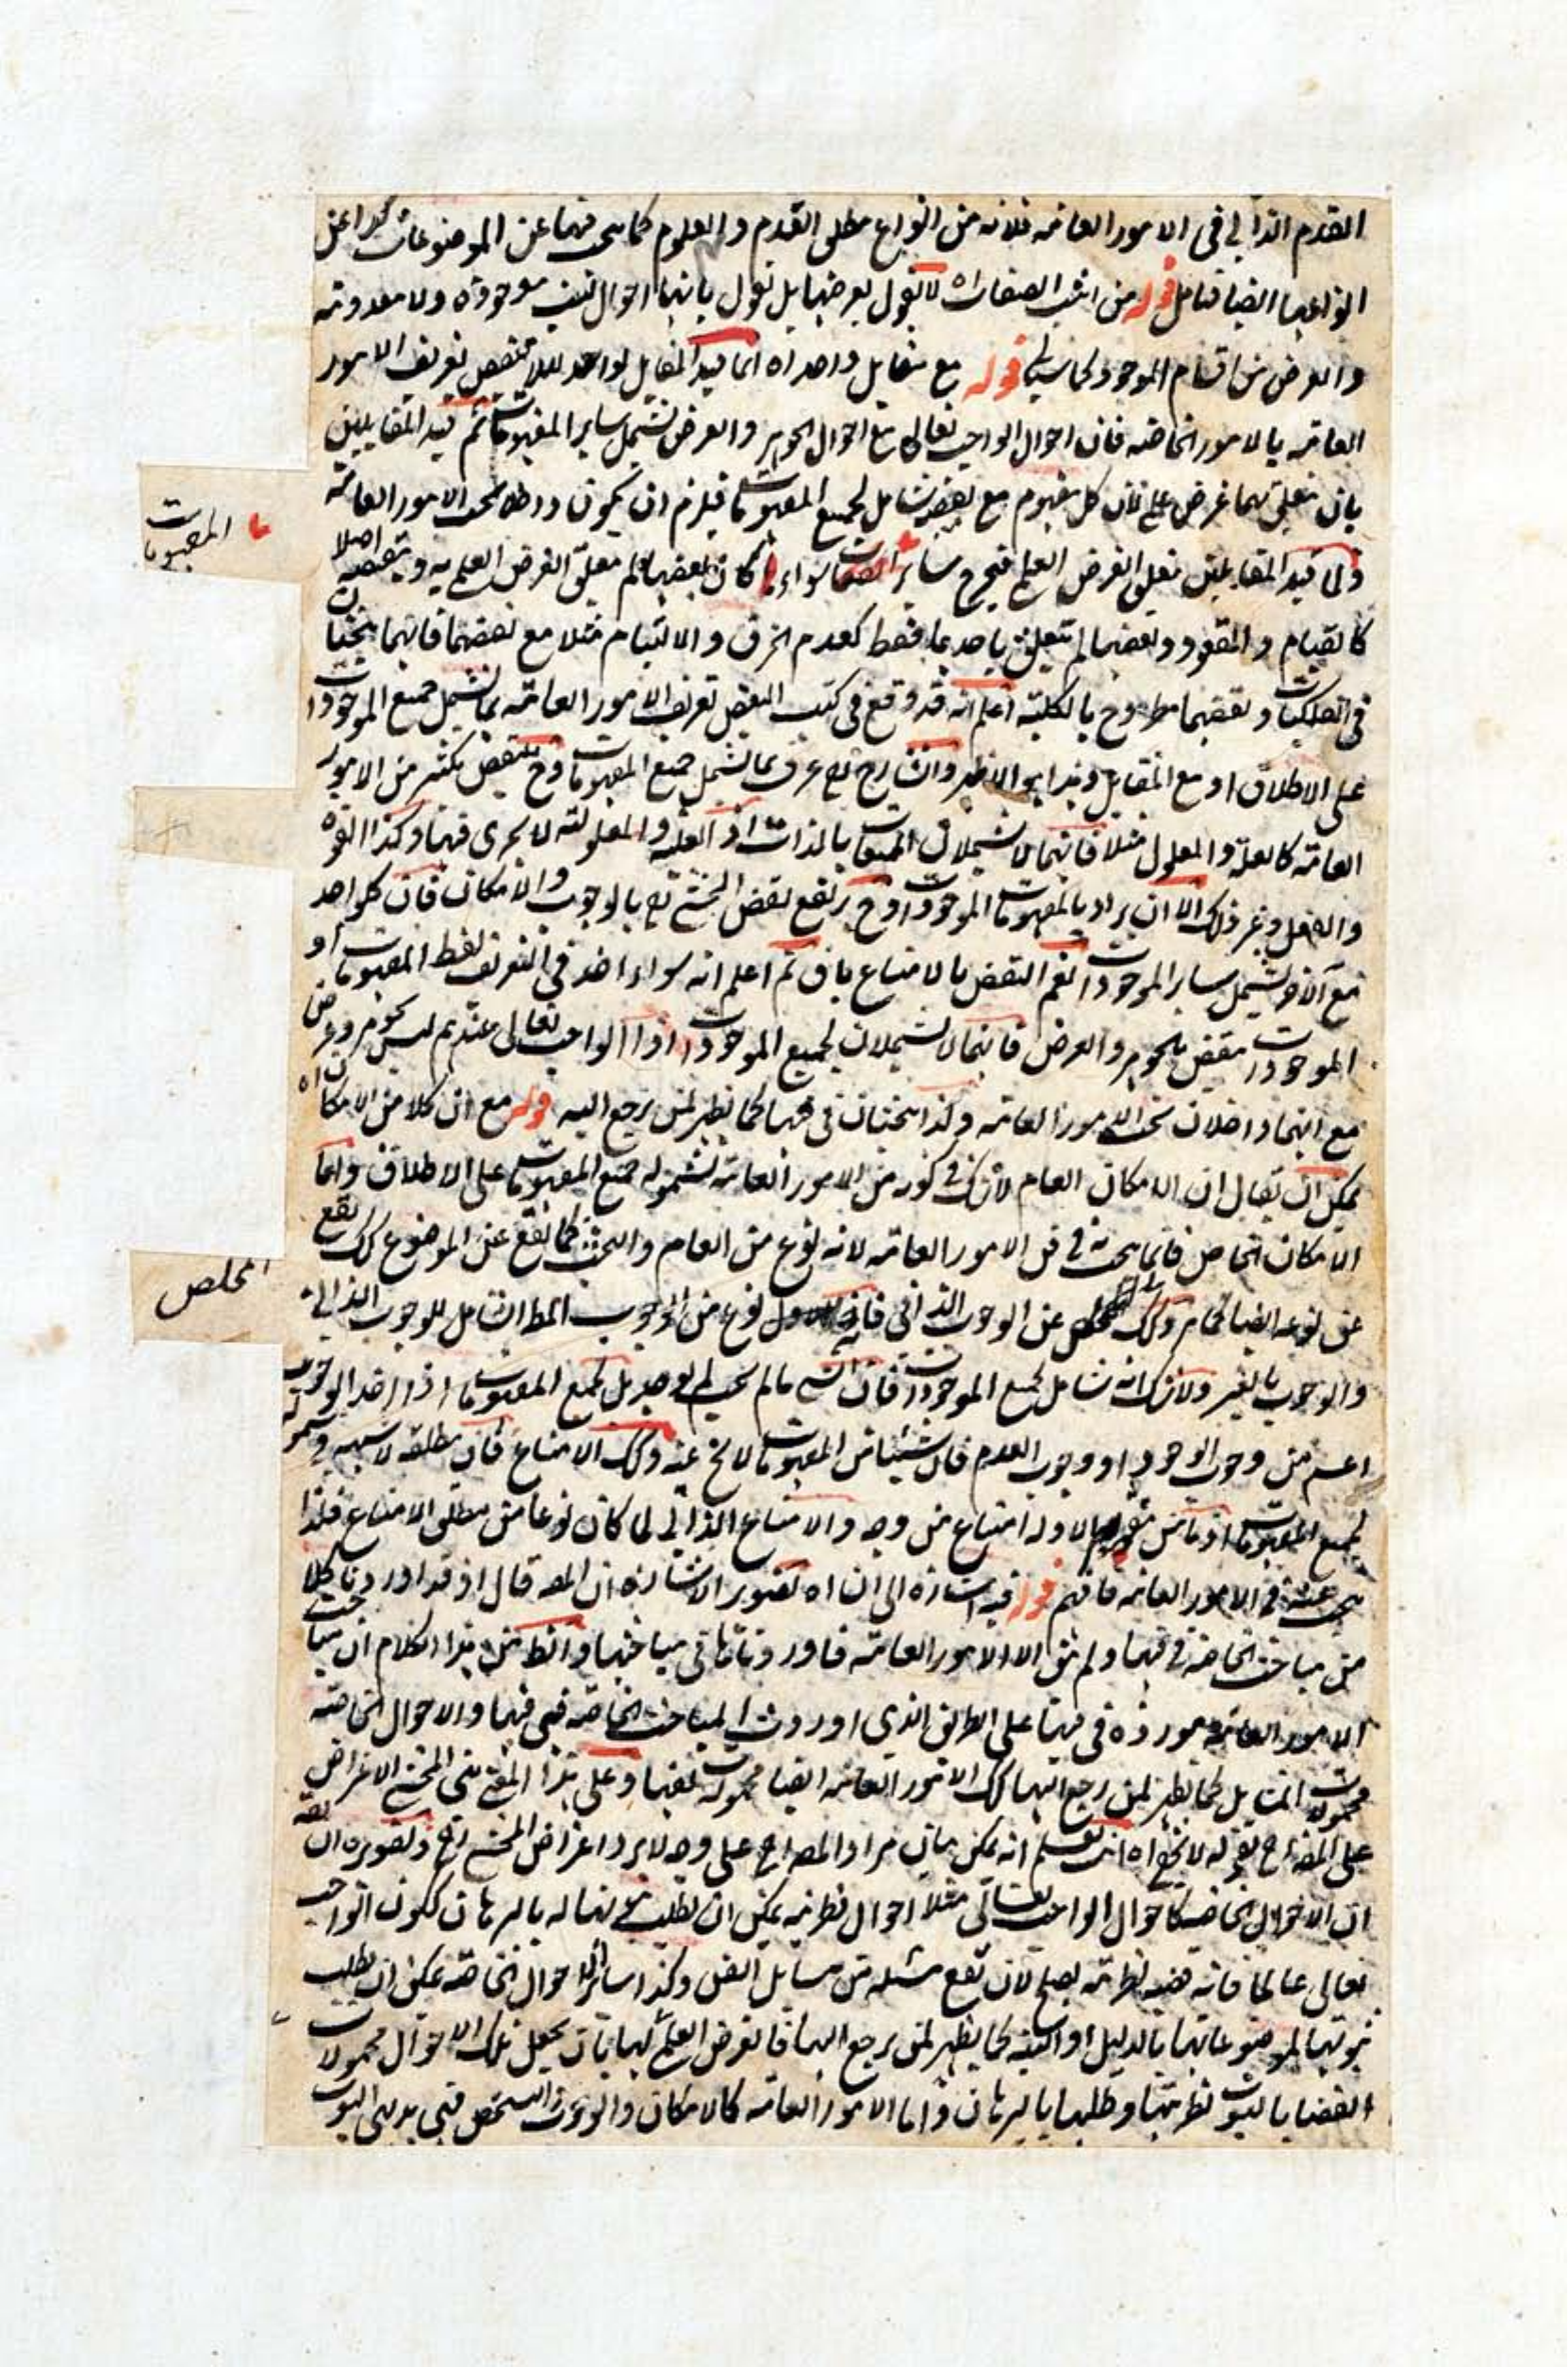 القدم الذاتي في الامور العامه فلانه من انواع مطلق القدم والعلوم كما يبحث فيها عن الموضوعات كذا عن
انواعها ايضا فتامل قوله من اثبت الصفات اه لا نقول بعرضها بل نقول بانها احوال ليست موجودة ولا معدومة
والعرض من اقسام الموجود كما سياتى قوله مع مقابل واحد اه انما قيد المقابل لواحد لئلا ينتقض تعريف الامور
العامه بالامور الخاصه فان احوال الواجب تعالى مع احوال الجوهر والعرض تشمل ساير المفهومات ثم قيد المتقابلين
بان يتعلق بهما غرض علمى لان كل مفهوم مع نقيضه شامل لجميع المفهومات فيلزم ان يكون داخلا تحت الامور العامة
ولما قيد المتقابلين بتعلق الغرض العلمى فيخرج ساير المفهومات سواء كان بعضها لم يتعلق الغرض العلمى به وبنقيضه اصلا
كالقيام والقعود وبعضها لم يتعلق باحدهما فقط كعدم الخرق والالتيام مثلا مع نقيضهما فانهما يبحثان
في الفلكيات ونقيضهما مطروح بالكلية اعلم انه قد وقع في كتب البعض تعريف الامور العامه بما يشمل جميع الموجودات
على الاطلاق او مع المقابل وهذا هو الاظهر والشارح رح عرف بما يشمل جميع المفهومات وح ينتقض بكثير من الامور
العامه كالعلة والمعلول مثلا فانهما لا يشملان الممتنعات بالذات اذ العلية والمعلولية لا يجرى فيها وكذا القوة
والفعل وغير ذلك الا ان يراد بالمفهومات الموجودات وح يرتفع نقض المحشى رح بالوجوب والامكان فان كل واحد
مع الآخر يشمل ساير الموجودات نعم النقض بالامتناع باق ثم اعلم انه سواء اخذ في التعريف لفظ المفهومات او
الموجودات ينتقض بالجوهر والعرض فانهما لا يشملان لجميع الموجودات اذ الواجب تعالى عندهم ليس بجوهر وعرض
مع انهما داخلان تحت الامور العامه وكذا يبحثان في فنها كما يظهر لمن يرجع اليه قوله مع ان كلا من الامكان اه
يمكن ان يقال ان الامكان العام لا شك في كونه من الامور العامه لشموله جميع المفهومات على الاطلاق واما
الامكان الخاص فانما يبحث في فن الامور العامه لانه نوع من العام والبحث كما يقع عن الموضوع كك يقع
عن نوعه ايضا كما مر وكك عن الوجوب الذاتي فانه نوع من الوجوب المط الشامل للوجوب الذاتي
والوجوب بالغير ولا شك انه شامل لجميع الموجودات فان الشئ ما لم يجب لم يوجد بل لجميع المفهومات اذا اخذ الوجوب
اعم من وجوب الوجود او وجوب العدم فان شيئا من المفهومات لا يخ عنه وكك الامتناع فان مطلقه لا شبهة في شموله
لجميع المفهومات اذ ما من مفهوم الا وله امتناع من وجه والامتناع الذاتي لما كان نوعا من مطلق الامتناع فلذا
يبحث عنه في الامور العامه فافهم قوله فيه اشارة الى ان اه تصوير الاشارة ان المصـ قال اذ قد اوردنا كلا
من مباحث الخاصة في فنها ولم يبق الا الامور العامه فاوردناها في مباحثها والظ من هذا الكلام ان مباحث
الامور العامه موردة في فنها على الطريق الذى اوردت المباحث الخاصه في فنها والاحوال الخاصه
محمولات المسايل كما يظهر لمن رجع اليها كك الامور العامه ايضا محمولات لفنها وعلى هذا المعنى بنى المحشى الاعتراض
على المصـ رح بقوله لا يخفى اه انت تعلم انه يمكن بيان مراد المصـ رح على وجه لا يرد اعتراض المحشى رح وتصويره انه
ان الاحوال الخاصه كاحوال الواجب تعالى مثلا احوال نظريه يمكن ان يطلب ثبوتها له بالبرهان ككون الواجب
تعالى عالما فانه قضيه نظريه يصلح لان تقع مسئله من مسايل الفن وكذا ساير الاحوال الخاصه يمكن ان يطلب
ثبوتها لموضوعاتها بالدليل او البينه كما يظهر لمن يرجع اليها فالغرض العلمى لها بان يجعل تلك الاحوال محمولات
القضايا بالثبوت نظريتها وطلبها بالبرهان واما الامور العامه كالامكان والوجود والتشخص فهى بديهى الثبوت
المفهومات
المخلص